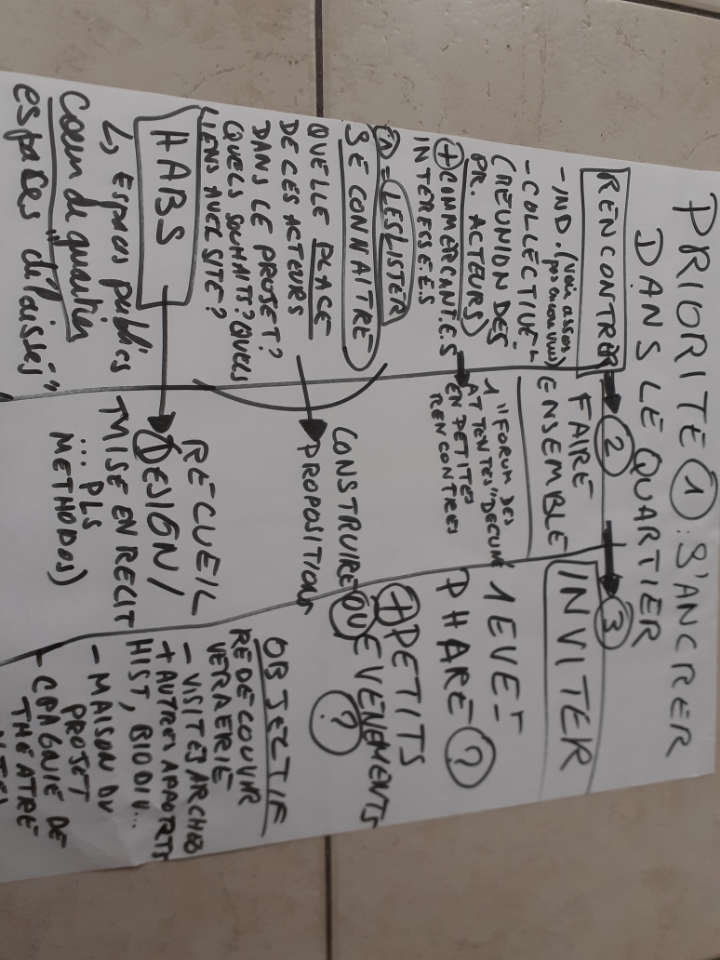 PRIORITÉ 1 : S'ANCRER
DANS LE QUARTIER
RENCONTRER
- IND. (voir assos,
- COLLECTIVEᵗ
(RÉUNION DES
PR. ACTEURS)
+ COMMERCANT.E.S
INTÉRESSÉ.E.S
= LES LISTER
SE CONNAITRE
QUELLE PLACE
DE CES ACTEURS
DANS LE PROJET?
QUELS SOUHAITS? QUELS
LIENS AVEC SITE?
HABS
↳ Espaces publics
Cœur de quartier
espaces "délaissés"
2
FAIRE
ENSEMBLE
1 "FORUM DES
ATTENTES"
EN PETITES
RENCONTRES
CONSTRUIRE
PROPOSITIONS
RECUEIL
DESIGN /
MISE EN RECIT
... PLS
METHODOS)
3
INVITER
1 EVEᵗ
PHARE ?
+ PETITS
OU EVENEMENTS
?
OBJECTIF
REDÉCOUVRIR
VERRERIE
- VISITES ARCHEO
+ AUTRES APPORTS
HIST, BIODIV...
- MAISON DU
PROJET
- CPAGNIE DE
THÉATRE